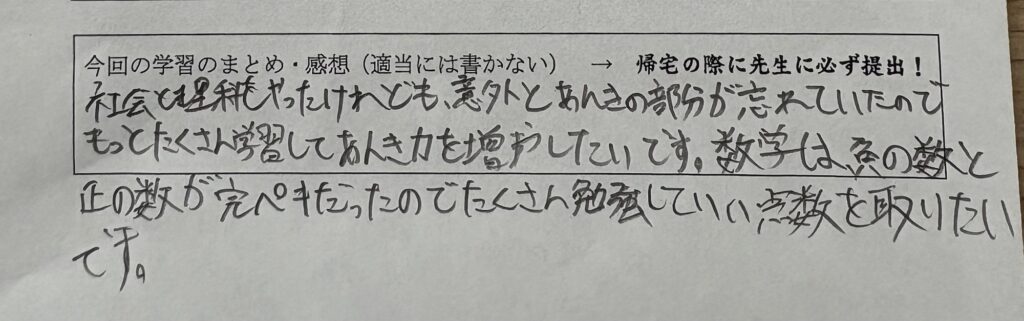 今回の学習のまとめ・感想（適当には書かない）　→　帰宅の際に先生に必ず提出！
社会と理科もやったけれども、意外とあんきの部分が忘れていたので
もっとたくさん学習してあんき力を増やしたいです。数学は、負の数と
正の数が完ペキだったのでたくさん勉強していい点数を取りたい
です。